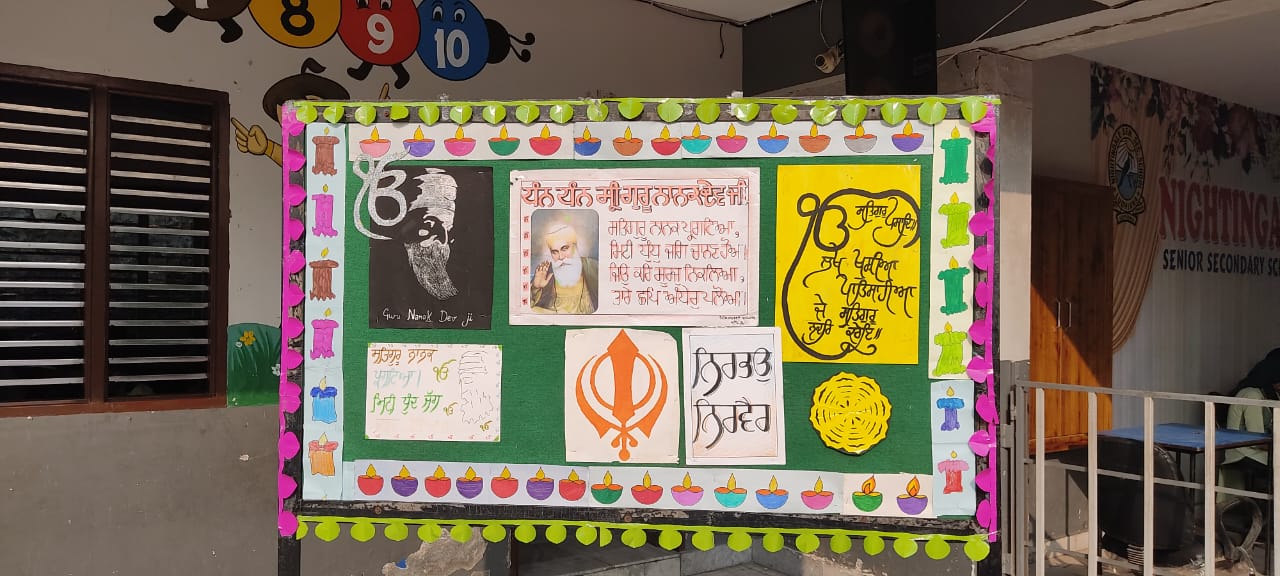 8
9
10
ੴ
Guru Nanak Dev ji
ਧੰਨ ਧੰਨ ਸ੍ਰੀ ਗੁਰੂ ਨਾਨਕ ਦੇਵ ਜੀ
ਸਤਿਗੁਰੁ ਨਾਨਕ ਪ੍ਰਗਟਿਆ,
ਮਿਟੀ ਧੁੰਧ ਜਗਿ ਚਾਨਣ ਹੋਆ।
ਜਿਓ ਕਰਿ ਸੂਰਜੁ ਨਿਕਲਿਆ,
ਤਾਰੇ ਛਪਿ ਅੰਧੇਰੁ ਪਲੋਆ।
ੴ ਸਤਿਗੁਰ ਪ੍ਰਸਾਦਿ॥
ਲਖ ਖੁਸੀਆ
ਪਾਤਿਸਾਹੀਆ
ਜੇ ਸਤਿਗੁਰੁ
ਨਦਰਿ ਕਰੇਇ॥
ਸਤਿਗੁਰੁ ਨਾਨਕ
ਪ੍ਰਗਟਿਆ। ੴ
ਮਿਟੀ ਧੁੰਦ ਜੱਗ ੴ
ੴ
ਨਿਰਭਉ
ਨਿਰਵੈਰ
NIGHTINGA
SENIOR SECONDARY SC